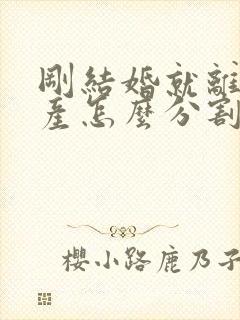 剛結婚就離
產怎麼分割
櫻小路鹿乃子